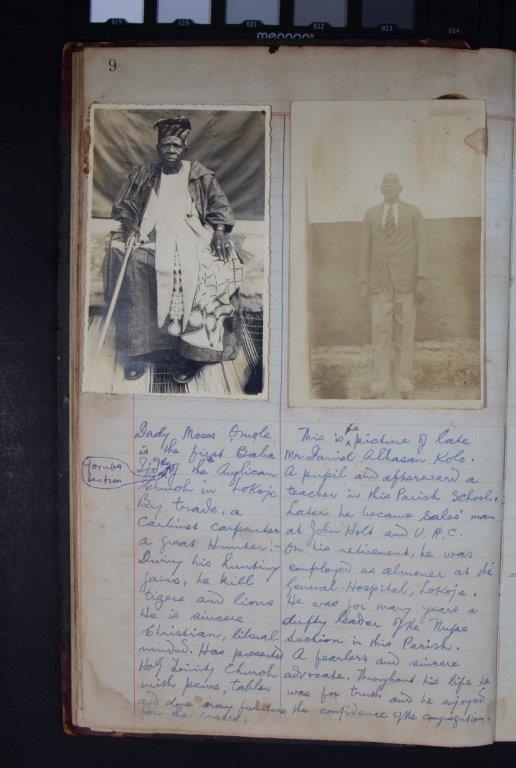 019 020 021 022 023 024
mennon
9
Dady Moses Omole
is the first Baba
Ijo of the Anglican
Yoruba
Section
Church in Lokoja
By trade, a
Carbinet carpenter
a great Hunter:-
During his hunting
gains, he kill
tigers and lions
He is sincere
Christian, liberal
minded. Has presented
Holy Trinity Church
with pews, tables
and done many furniture
for the
This is the picture of late
Mr Daniel Alhasan Kolo.
A pupil and afterward a
teacher in this Parish School.
Later he became sales' man
at John Holt and U.A.C.
On his retirement, he was
employed as almoner at the
General Hospital, Lokoja.
He was for many years a
leader of the Nupe
Section in this Parish.
A fearless and sincere
advocate. Throughout his life he
was for truth and he enjoyed
the confidence of the congregation.